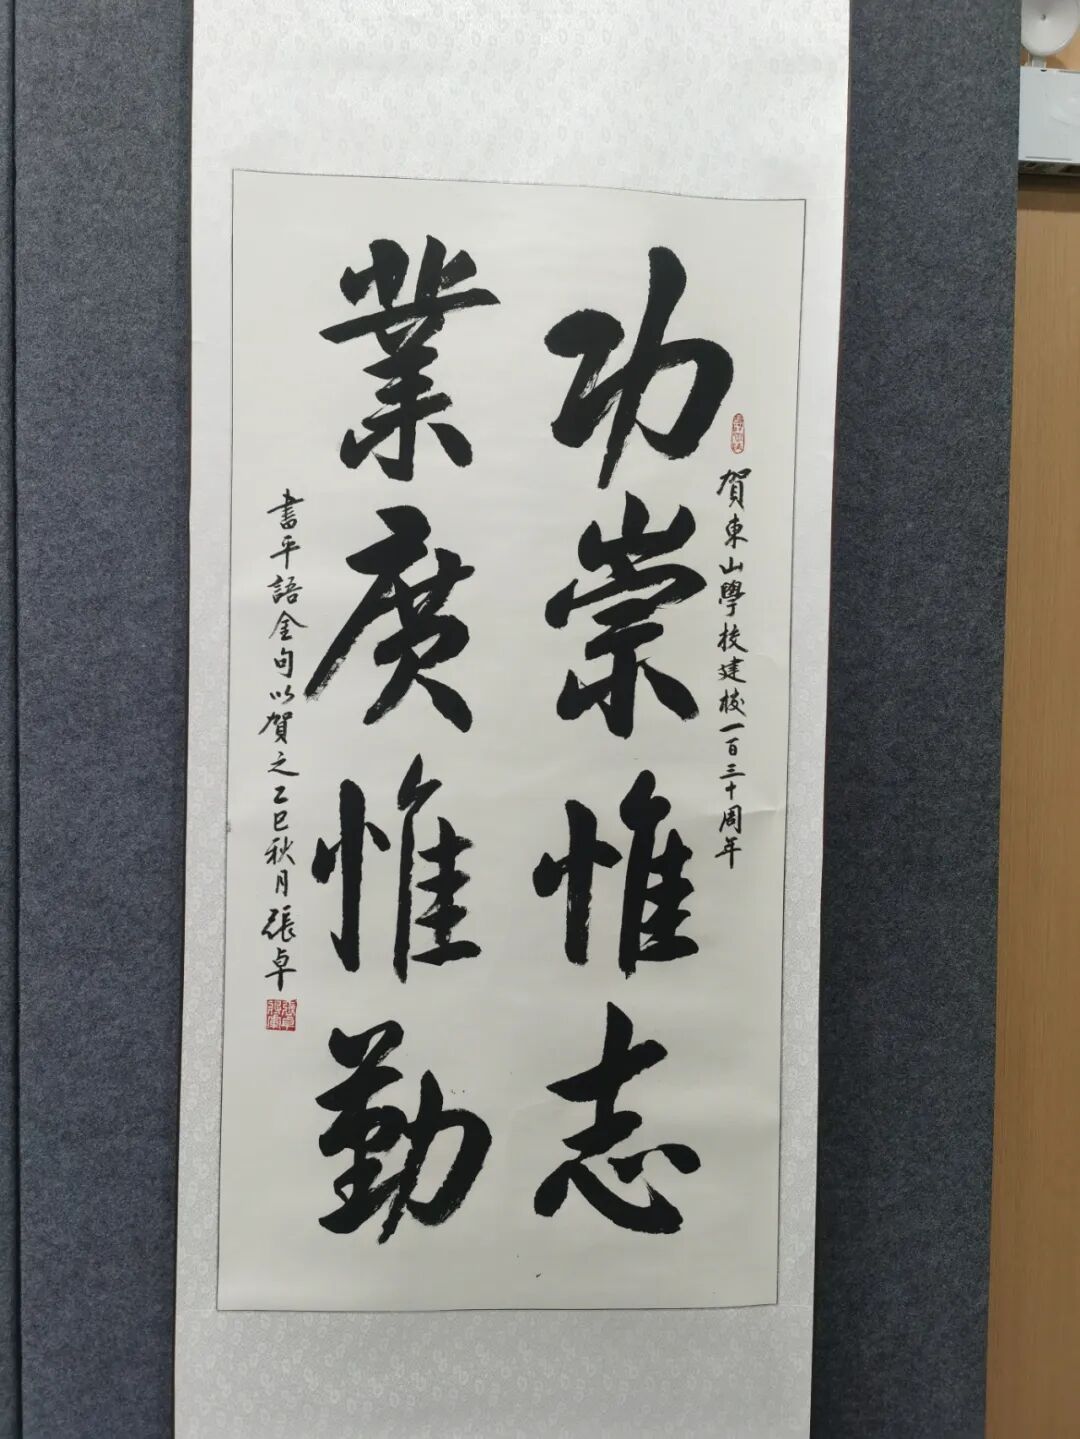 賀東山學校建校一百三十周年
功崇惟志
業廣惟勤
書平語金句以賀之乙巳秋月張卓